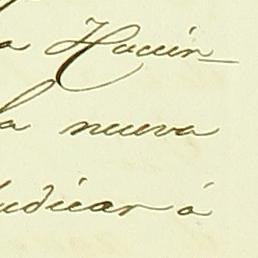 a Hacien-
la nueva
udicar á